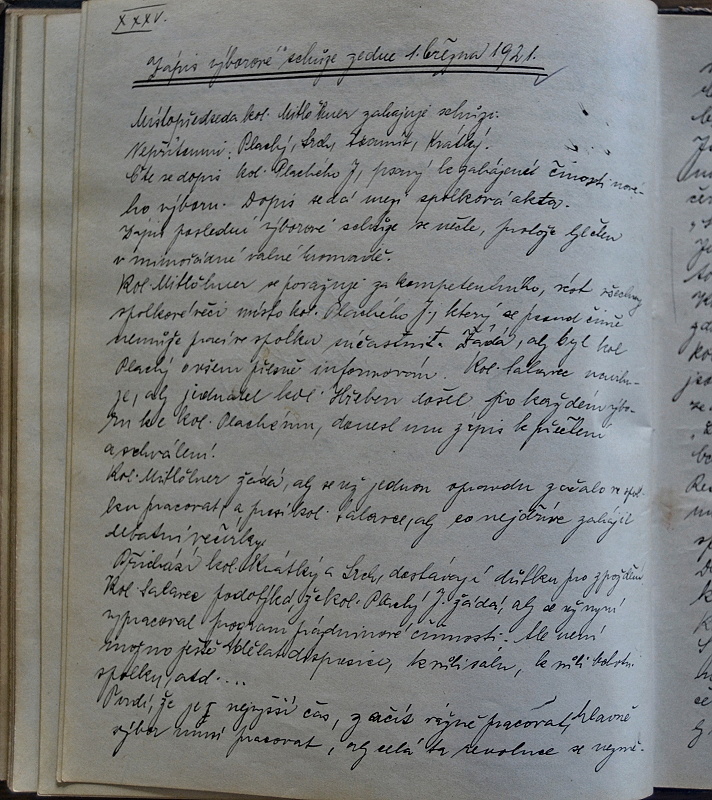 XXXV.
Zápis výborové schůze ze dne 1. března 1921.
Místopředseda kol. Mitlöhner zahajuje schůzi.
Nepřítomni: Plachý, Srch, Kratký.
Čte se dopis kol. Plachého J, psaný k zahájení činosti nové-
ho výboru. Dopis se dá mezi spolková akta.
Zápis poslední výborové schůze se nečte, protože byl čten
v mimořádné valné hromadě.
Kol. Mitlöhner se považuje za kompetentního, vést všechny
spolkové věci místo kol. Plachého J., který se prozd činně
nemůže práci ve spolku súčastnit. Žádá, aby byl kol
Plachý o všem přesně informován. Kol. Salavec navrhu-
je, aby jednatel kol. Hřeben došel po každém výbo-
ru ke kol. Plachému, donesl mu zápis k přečtení
a schválení.
Kol. Mitlöhner žádá, aby se už jednou opravdu začalo ve spol-
ku pracovat, a prosí kol. Salavce, aby co nejdříve zahájil
debatní večírky.
Přichází kol. Krátký a Srch, dostávají důtku pro zpoždění
Kol. Salavec podotýká, že kol. Plachý J. žádá, aby se už nyní
vypracoval program prázdninové činnosti. Ale není
možno ještě udělat disposice, kvůli sálu, kvůli
spolky, atd....
Tvrdí, že je nejvyšší čas, začíti vážně pracovat, hlavně
výbor musí pracovat, aby celá ta revoluce se nezmě-